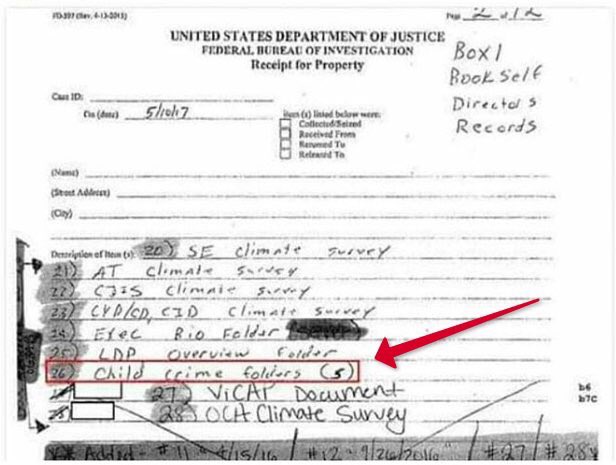 FD-597 (Rev. 4-13-2015)
Page 2 of 12
UNITED STATES DEPARTMENT OF JUSTICE
FEDERAL BUREAU OF INVESTIGATION
Receipt for Property
Box 1
Book Self
Director's
Records
Case ID:
On (date) 5/10/17
item (s) listed below were:
Collected/Seized
Received From
Returned To
Released To
(Name)
(Street Address)
(City)
Description of Item (s): 20) SE climate survey
21) AT Climate survey
22) CJIS Climate survey
23) CYD/CD, CID Climate survey
24) Exec Bio Folder
25) LDP Overview Folder
26) Child crime folders (5)
27) ViCAP Document
28) OCA Climate Survey
b6
b7C
** Added - #11 - 4/15/16 / #12 - 9/26/2016 / #27 / #28